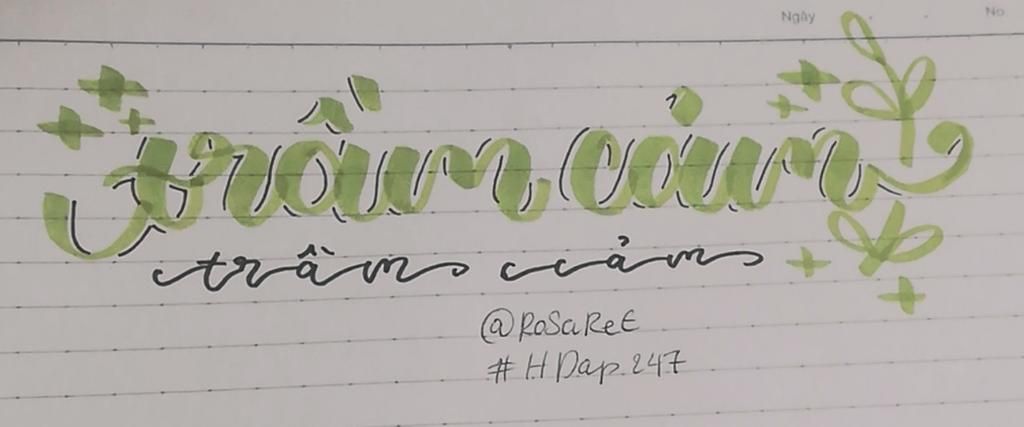 Ngày
No
trầm cảm
trầm cảm
@RoSaReE
#HDap247